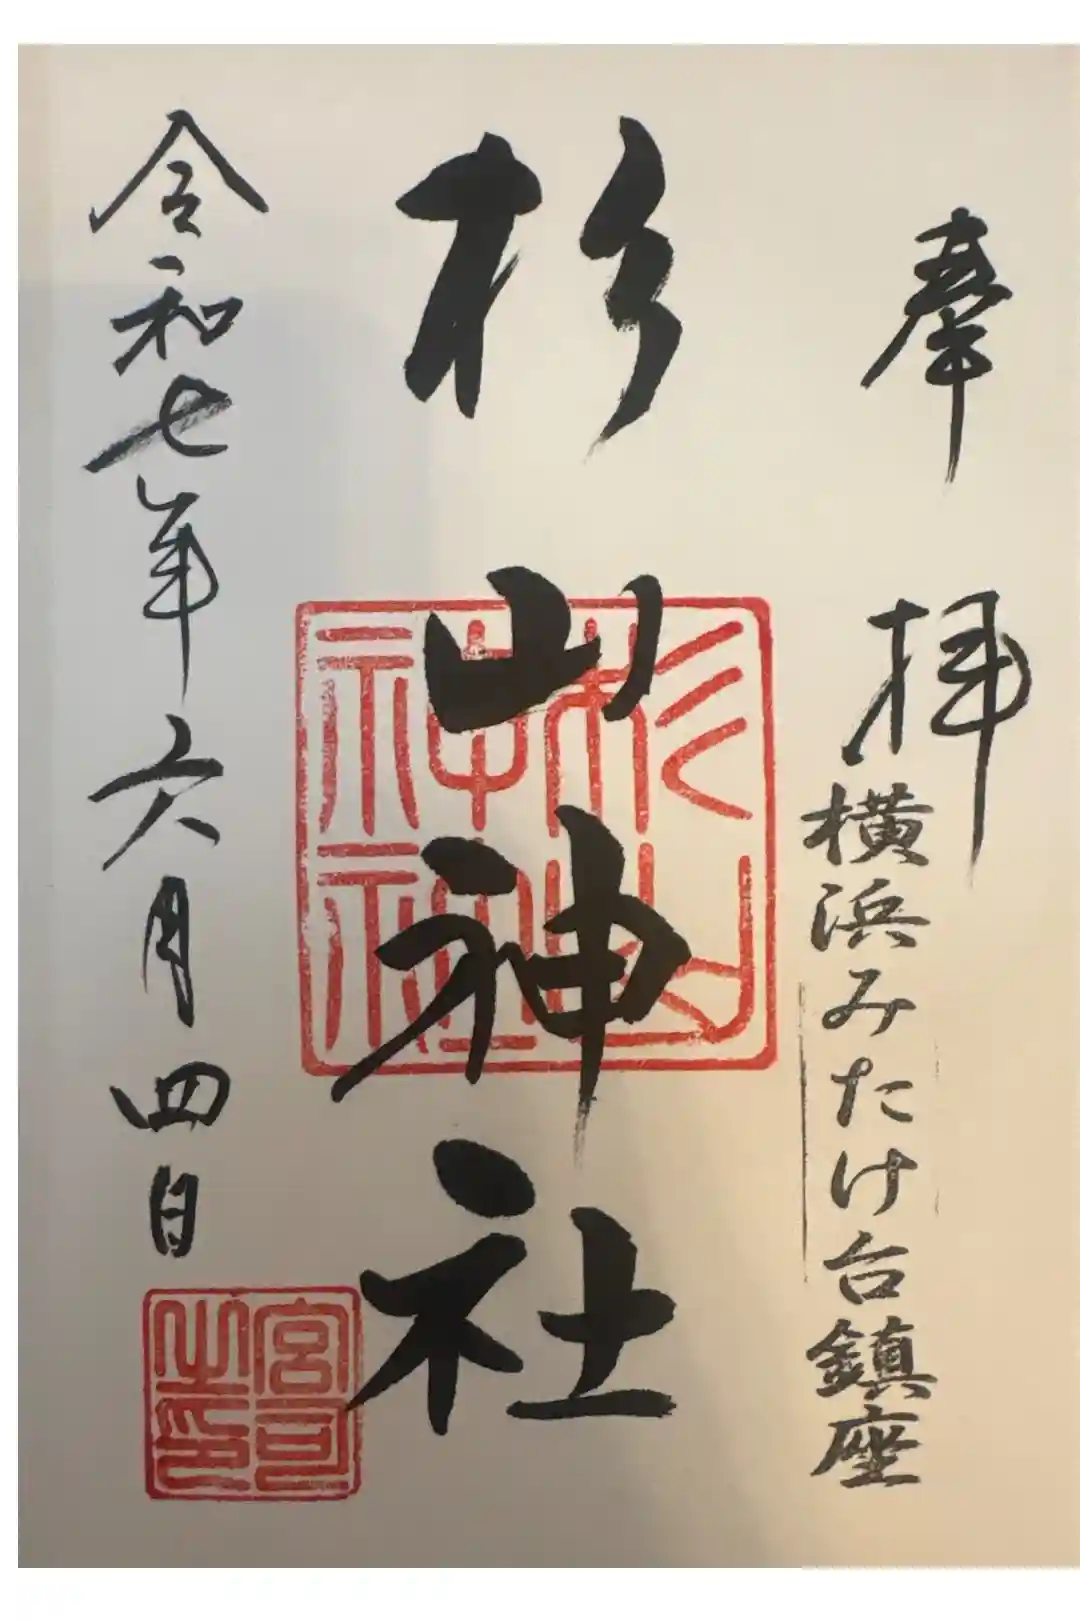 奉拝
横浜みたけ台鎮座
杉山神社
杉山神社
令和七年六月四日
宮司之印